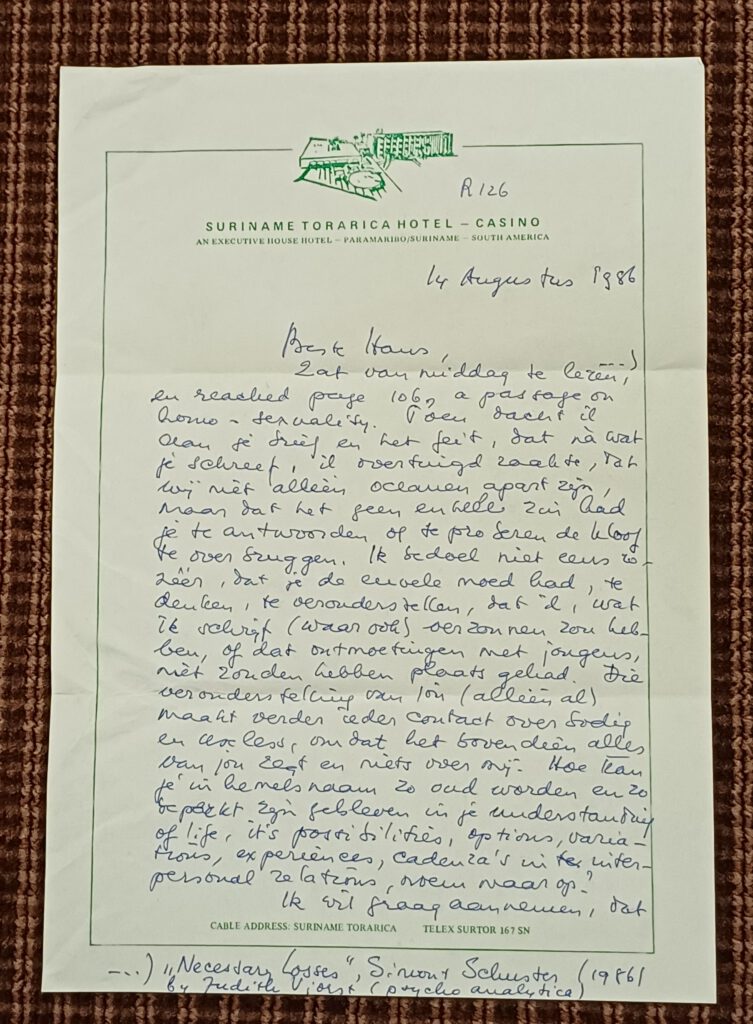 R 126
SURINAME TORARICA HOTEL – CASINO
AN EXECUTIVE HOUSE HOTEL – PARAMARIBO/SURINAME – SOUTH AMERICA
14 Augustus 1986
Beste Hans,
Zat van middag te lezen, ...)
en reached page 106, a passage on
homo-sexuality. Toen dacht ik
aan je brief en het feit, dat nà wat
je schreef, ik overtuigd raakte, dat
wij niet alleen oceanen apart zijn,
maar dat het geen enkele zin had
je te antwoorden of te proberen de kloof
te overbruggen. Ik bedoel niet eens zo-
zéér, dat je de euvele moed had, te
denken, te veronderstellen, dat ik, wat
ik schrijf (waar ook) verzonnen zou heb-
ben, of dat ontmoetingen met jongens,
niet zouden hebben plaats gehad. Die
veronderstelling van jou (alléén al)
maakt verder ieder contact overbodig
en useless, omdat het bovendien alles
van jou zegt en niets over mij. Hoe kan
je in hemelsnaam zo oud worden en zo
beperkt zijn gebleven in je understanding
of life, it's possibilities, options, varia-
tions, experiences, cadenza's in inter-
personal relations, noem maar op?
Ik wil graag aannemen, dat
CABLE ADDRESS: SURINAME TORARICA TELEX SURTOR 167 SN
...) "Necessary Losses", Simon & Schuster (1986)
by Judith Viorst (psycho analytica)